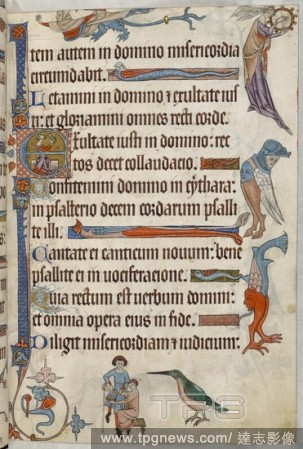 tem autem in domino misericordia
circumdabit.
Letamini in domino & exultate ius
ti: et gloriamini omnes recti corde.
Exultate iusti in domino: rec
tos decet collaudacio.
Confitemini domino in cythara:
in psalterio decem cordarum psalli
te illi:
Cantate ei canticum nouum: bene
psallite ei in uociferacione.
Quia rectum est uerbum domini:
et omnia opera eius in fide.
Diligit misericordiam & iudicium:
TPG
www.tpgnews.com/達志影像